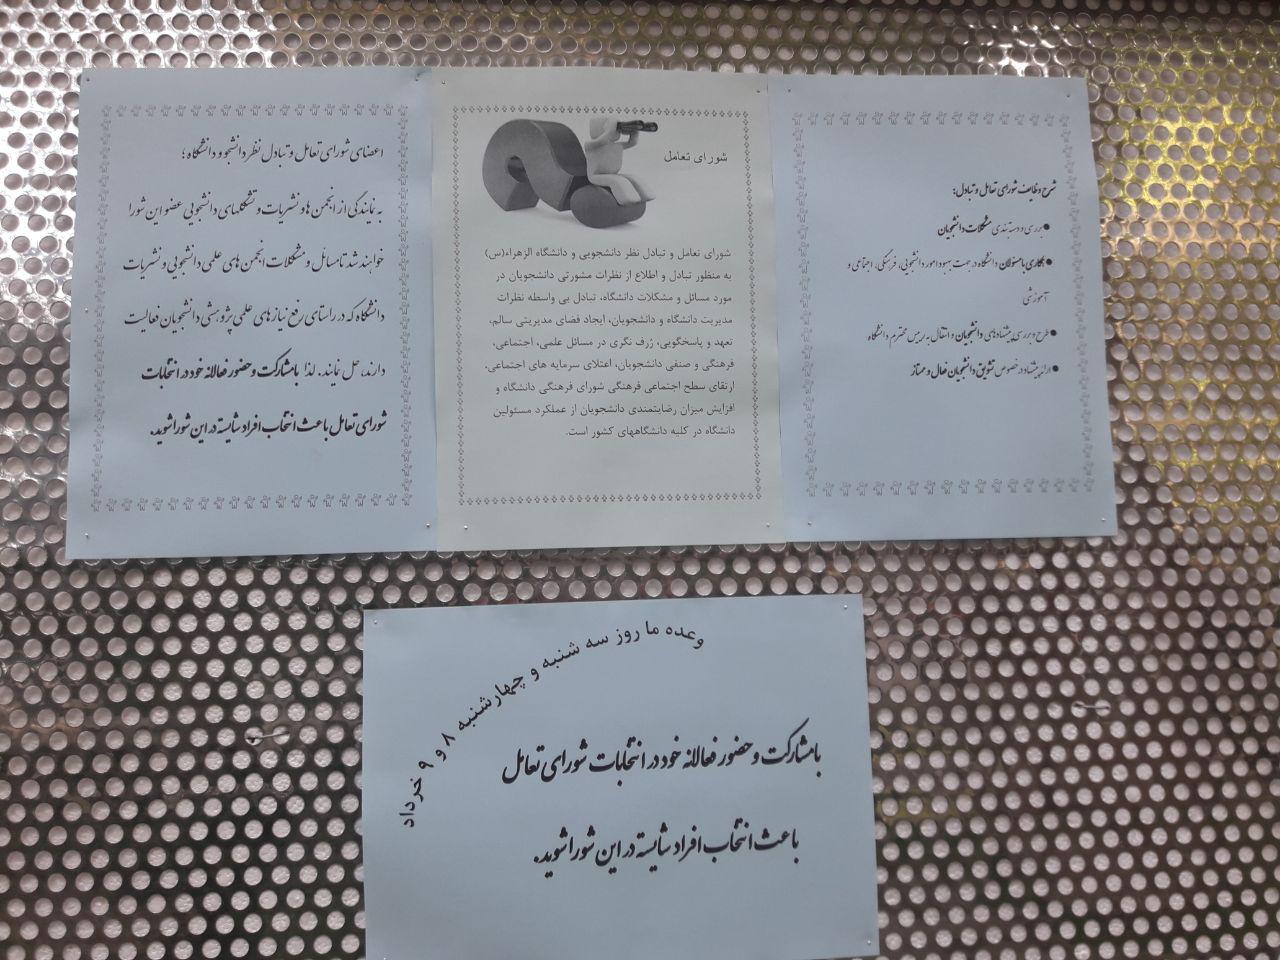 شرح وظایف شورای تعامل و تبادل:
●بررسی و دسته بندی مشکلات دانشجویان
●همکاری با مسئولان دانشگاه در جهت بهبود امور دانشجویی، فرهنگی، اجتماعی و
آموزشی
●طرح و بررسی پیشنهادهای دانشجویان و انتقال به رییس محترم دانشگاه
●ارائه پیشنهاد در خصوص تشویق دانشجویان فعال و ممتاز
شورای تعامل
شورای تعامل و تبادل نظر دانشجویی و دانشگاه الزهراء(س)
به منظور تبادل و اطلاع از نظرات مشورتی دانشجویان در
مورد مسائل و مشکلات دانشگاه، تبادل بی واسطه نظرات
مدیریت دانشگاه و دانشجویان، ایجاد فضای مدیریتی سالم،
تعهد و پاسخگویی، ژرف نگری در مسائل علمی، اجتماعی،
فرهنگی و صنفی دانشجویان، اعتلای سرمایه های اجتماعی،
ارتقای سطح اجتماعی فرهنگی شورای فرهنگی دانشگاه و
افزایش میزان رضایتمندی دانشجویان از عملکرد مسئولین
دانشگاه در کلیه دانشگاههای کشور است.
اعضای شورای تعامل و تبادل نظر دانشجو و دانشگاه؛
به نمایندگی از انجمن ها و نشریات و تشکلهای دانشجویی عضو این شورا
خواهند شد تا مسائل و مشکلات انجمن های علمی دانشجویی و نشریات
دانشگاه که در راستای رفع نیازهای علمی پژوهشی دانشجویان فعالیت
دارند، حل نمایند. لذا با مشارکت و حضور فعالانه خود در انتخابات
شورای تعامل باعث انتخاب افراد شایسته در این شورا شوید.
وعده ما روز سه شنبه و چهارشنبه ۸ و ۹ خرداد
با مشارکت و حضور فعالانه خود در انتخابات شورای تعامل
باعث انتخاب افراد شایسته در این شورا شوید.